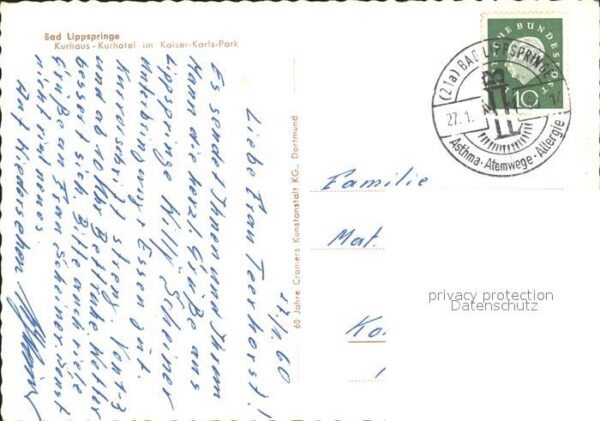 Bad Lippspringe
Kurhaus - Kurhotel im Kaiser-Karls-Park
27./1. 60
Liebe Frau Terhorst!
Es sendet Ihnen und Ihrem
Mann die herzl. Grüße aus
Lippspringe Willy
Unterbring. und Essen gut.
Kurvorschrift streng. Von 1-3
und ab Uhr Bettruhe. Wetter
bessert sich. Bitte auch viele
Grüße an Frau Schriner. Sonst
nicht viel neues
Auf Wiedersehen
60 Jahre Cramers Kunstanstalt KG., Dortmund
DEUTSCHE BUNDESPOST
10
(21a) BAD LIPPSPRINGE
27.1.
Asthma-Atemwege-Allergie
Familie
Mat.
Ko.
privacy protection
Datenschutz